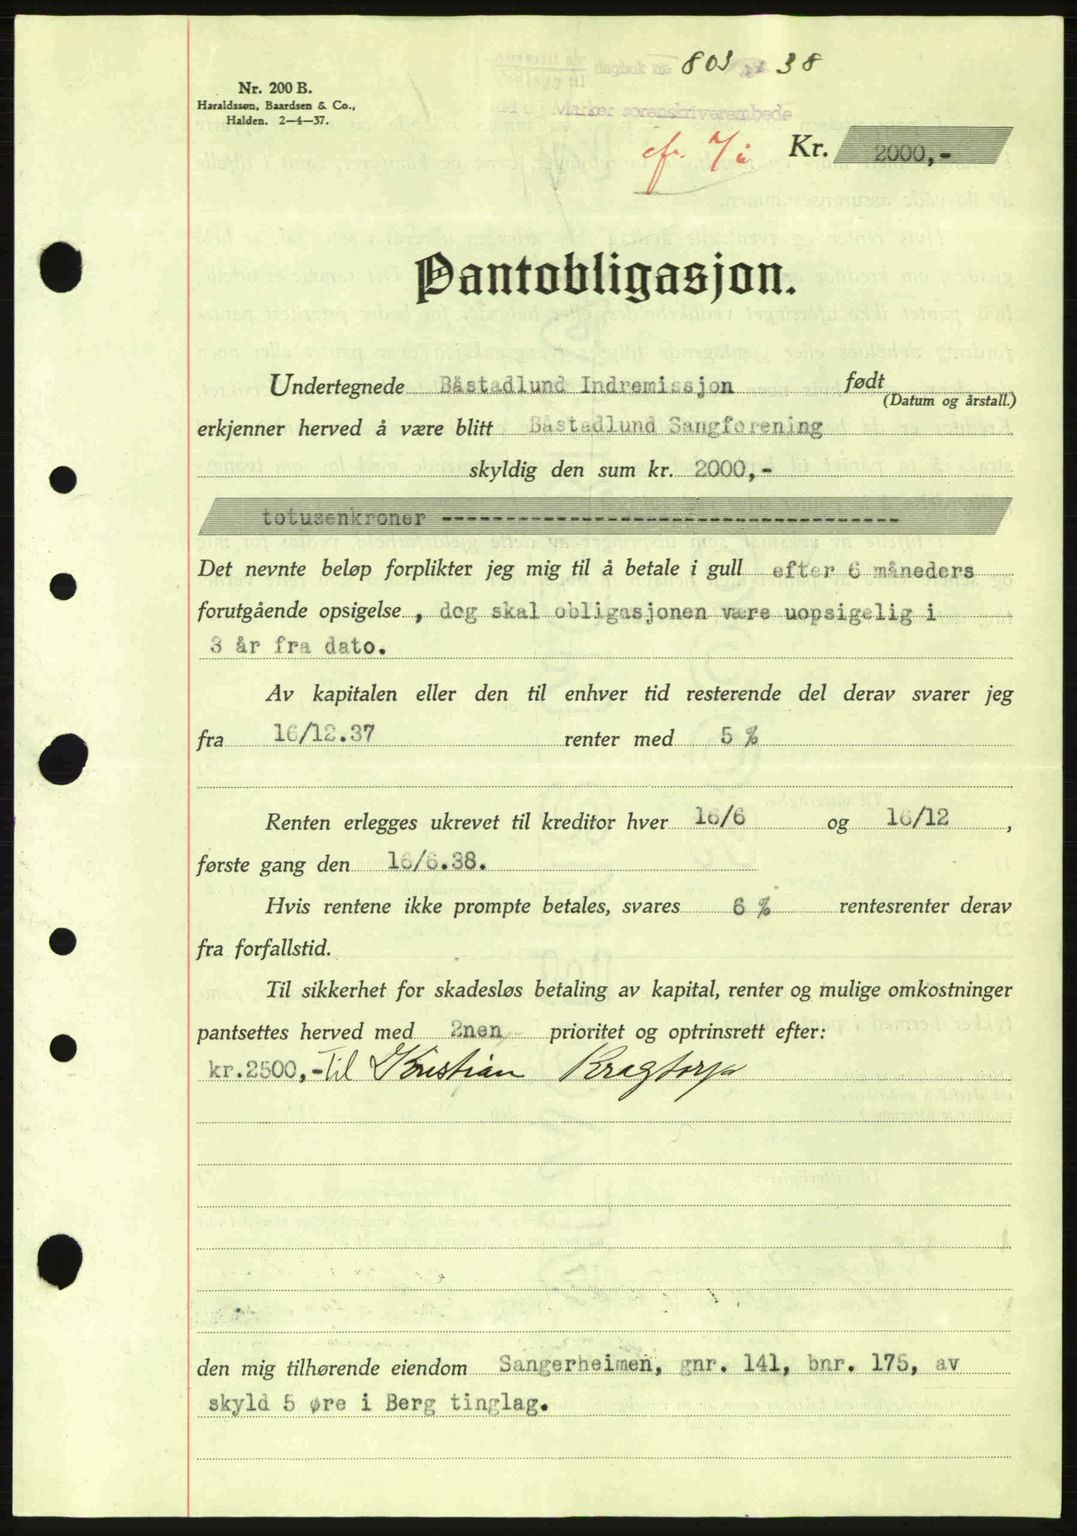 dagbok no 803 38
Nr. 200 B.
Haraldssøn, Baardsen & Co.,
Halden. 2—4—37.
Marker sorenskriverembede
cfr.
Kr. 2000,-
Pantobligasjon.
Undertegnede Båstadlund Indremissjon født
(Datum og årstall.)
erkjenner herved å være blitt Båstadlund Sangforening
skyldig den sum kr. 2000,-
totusenkroner ----------------------------------
Det nevnte beløp forplikter jeg mig til å betale i gull efter 6 måneders
forutgående opsigelse , dog skal obligasjonen være uopsigelig i
3 år fra dato.
Av kapitalen eller den til enhver tid resterende del derav svarer jeg
fra 16/12.37 renter med 5 %
Renten erlegges ukrevet til kreditor hver 16/6 og 16/12 ,
første gang den 16/6.38.
Hvis rentene ikke prompte betales, svares 6 % rentesrenter derav
fra forfallstid.
Til sikkerhet for skadesløs betaling av kapital, renter og mulige omkostninger
pantsettes herved med 2nen prioritet og optrinsrett efter:
kr.2500,- til Kristian Kragtorp
den mig tilhørende eiendom Sangerheimen, gnr. 141, bnr. 175, av
skyld 5 øre i Berg tinglag.